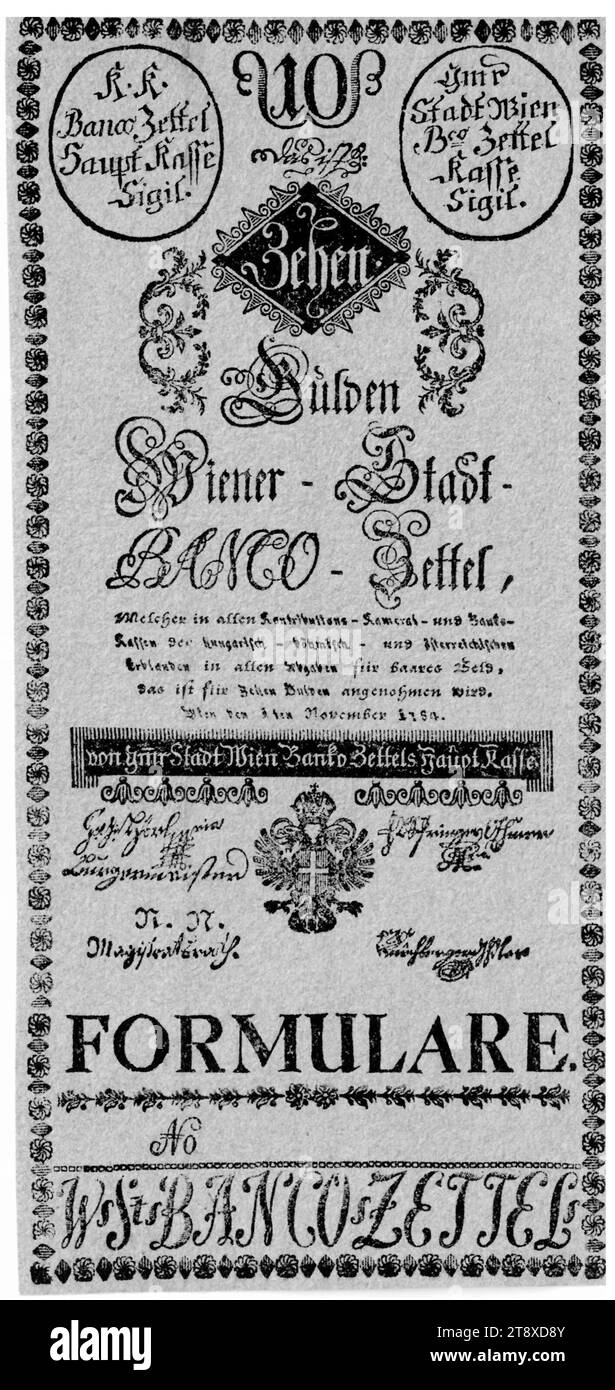 K. K.
Banco Zettel
Haupt Kasse
Sigil.
10
das ist:
Gmr
Stadt Wien
Bco Zettel
Kasse
Sigil.
Zehen
Gulden
Wiener - Stadt-
BANCO - Zettel,
Welcher in allen Kontributions - Kameral - und Banko-
Kassen der hungarisch - böhmisch - und österreichischen
Erblanden in allen Abgaben für baares Geld,
das ist für Zehen Gulden angenohmen wird.
Wien den 1ten November 1784.
von gmr Stadt Wien Banko Zettels Haupt Kasse
Burgermeister
N. N.
Magistratsrath.
FORMULARE.
No
W. St. BANCO ZETTEL
alamy
Image ID: 2T8XD8Y
www.alamy.com